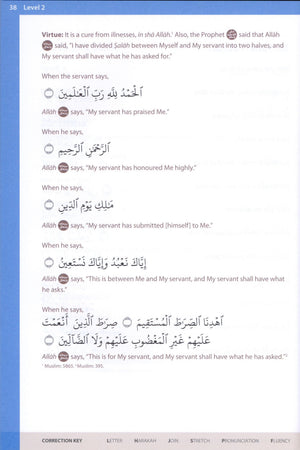 38 Level 2
Virtue: It is a cure from illnesses, in shā Allāh.¹ Also, the Prophet ﷺ said that Allāh
said, "I have divided Ṣalāh between Myself and My servant into two halves, and
My servant shall have what he has asked for."
When the servant says,
ٱلْحَمْدُ لِلَّهِ رَبِّ ٱلْعَـٰلَمِينَ
Allāh says, "My servant has praised Me."
When he says,
ٱلرَّحْمَـٰنِ ٱلرَّحِيمِ
Allāh says, "My servant has honoured Me highly."
When he says,
مَـٰلِكِ يَوْمِ ٱلدِّينِ
Allāh says, "My servant has submitted [himself] to Me."
When he says,
إِيَّاكَ نَعْبُدُ وَإِيَّاكَ نَسْتَعِينُ
Allāh says, "This is between Me and My servant, and My servant shall have what
he asks."
ٱهْدِنَا ٱلصِّرَٰطَ ٱلْمُسْتَقِيمَ صِرَٰطَ ٱلَّذِينَ أَنْعَمْتَ
عَلَيْهِمْ غَيْرِ ٱلْمَغْضُوبِ عَلَيْهِمْ وَلَا ٱلضَّآلِّينَ
Allāh says, "This is for My servant, and My servant shall have what he has asked."²
¹ Muslim: 5865. ² Muslim: 395.
CORRECTION KEY LETTER HARAKAH JOIN STRETCH PRONUNCIATION FLUENCY